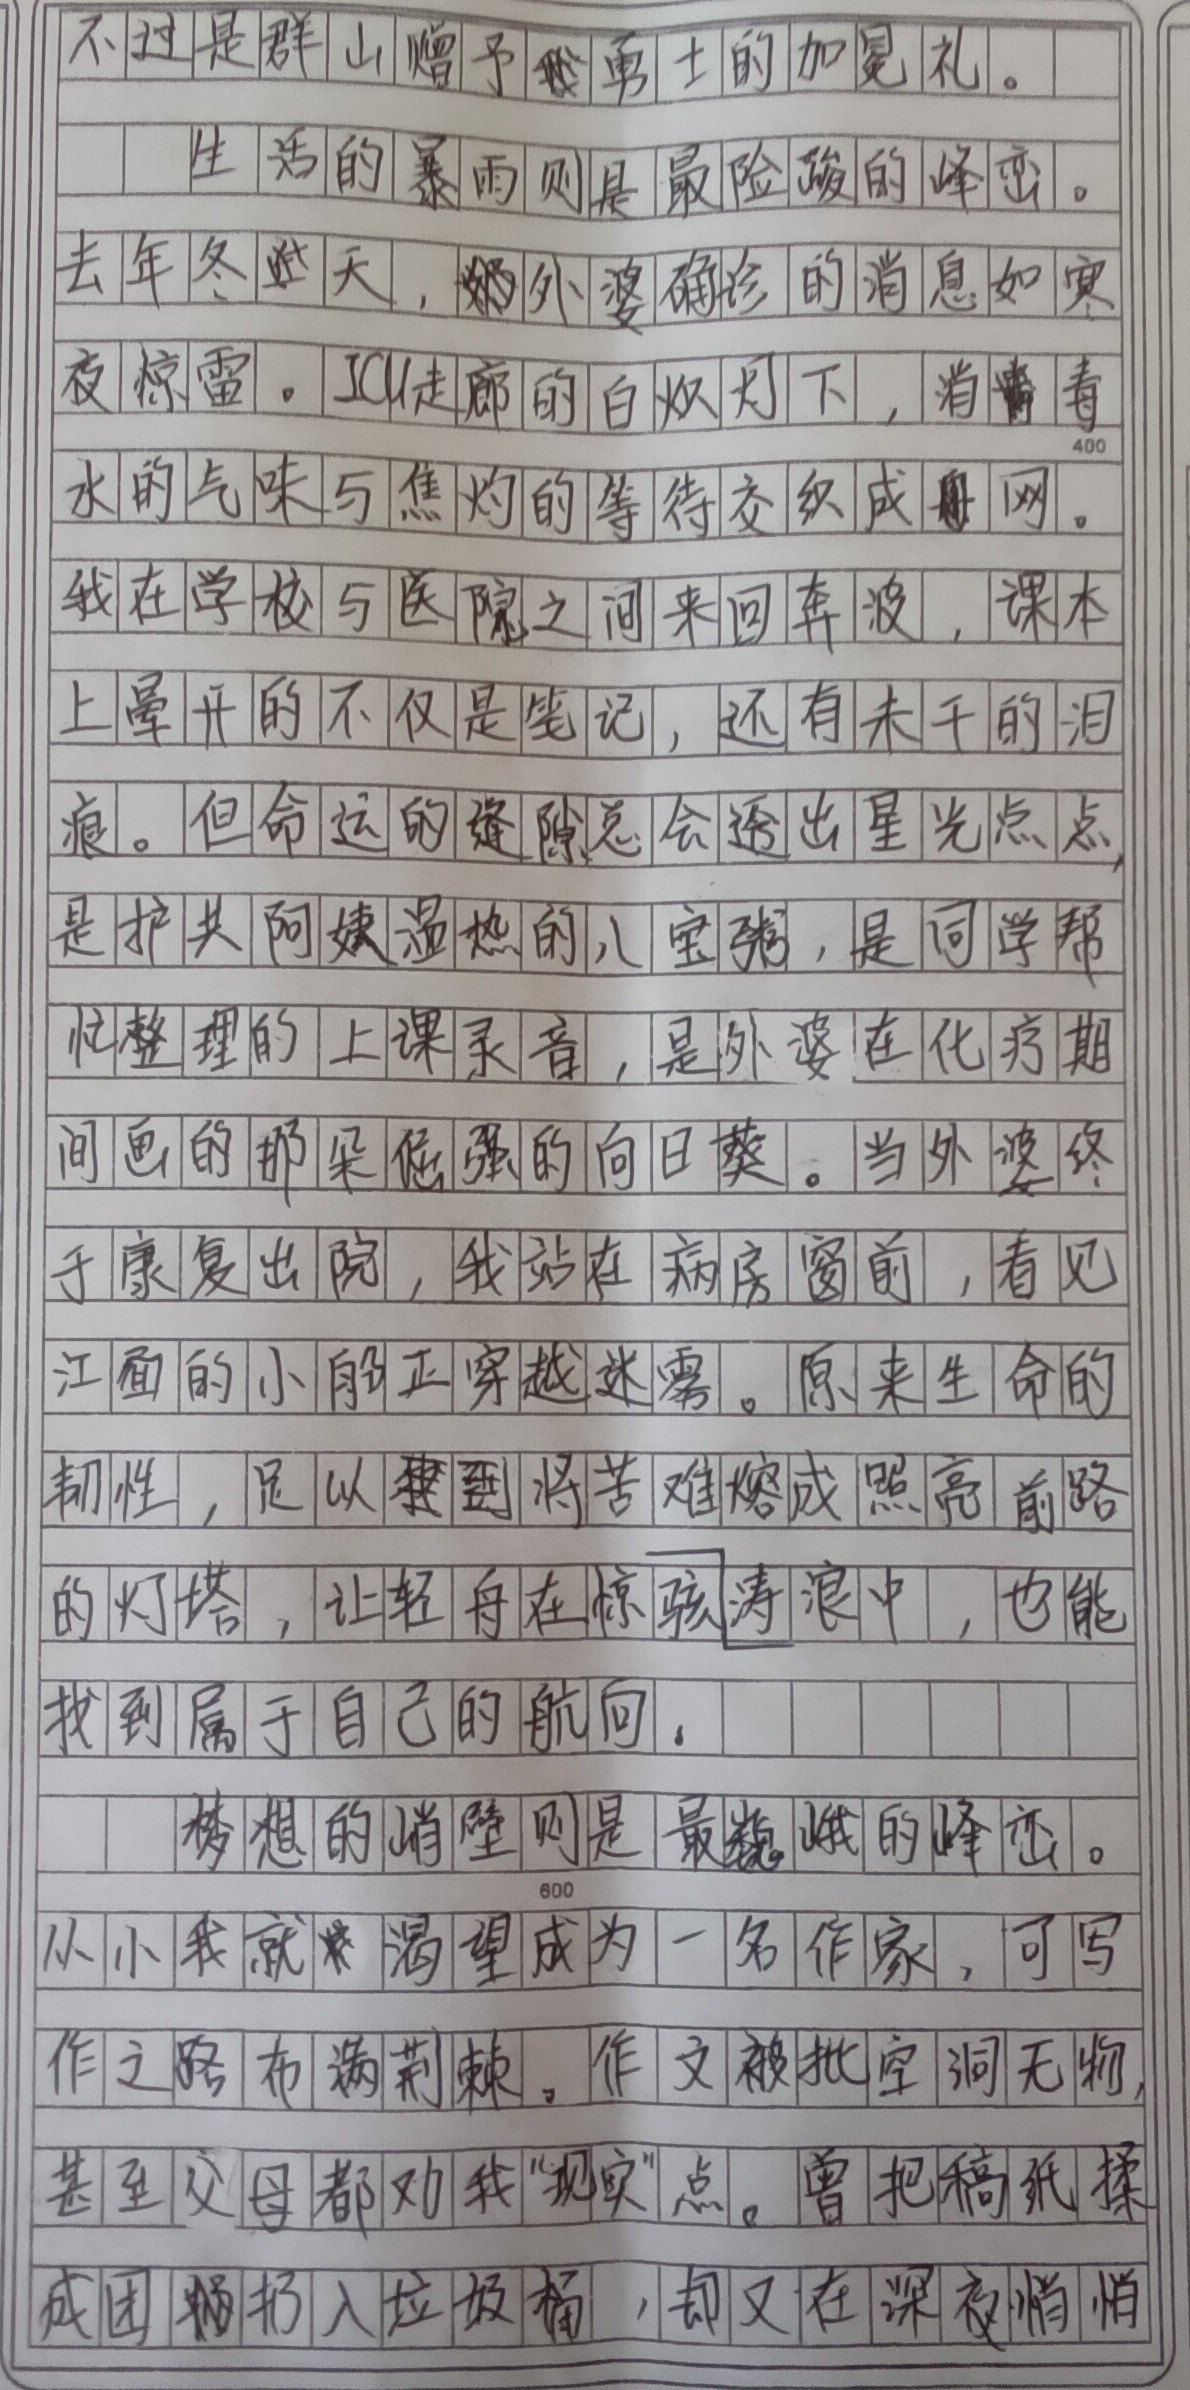 不过是群山赠予勇士的加冕礼。
生活的暴雨则是最险峻的峰峦。
去年冬天，外婆确诊的消息如寒
夜惊雷。ICU走廊的白炽灯下，消毒
400
水的气味与焦灼的等待交织成网。
我在学校与医院之间来回奔波，课本
上晕开的不仅是笔记，还有未干的泪
痕。但命运的缝隙总会透出星光点点，
是护共阿姨温热的八宝粥，是同学帮
忙整理的上课录音，是外婆在化疗期
间画的那朵倔强的向日葵。当外婆终
于康复出院，我站在病房窗前，看见
江面的小船正穿越迷雾。原来生命的
韧性，足以将苦难熔成照亮前路
的灯塔，让轻舟在惊骇涛浪中，也能
找到属于自己的航向．
梦想的峭壁则是最巍峨的峰峦。
600
从小我就渴望成为一名作家，可写
作之路布满荆棘。作文被批空洞无物，
甚至父母都劝我“现实”点。曾把稿纸揉
成团扔入垃圾桶，却又在深夜悄悄